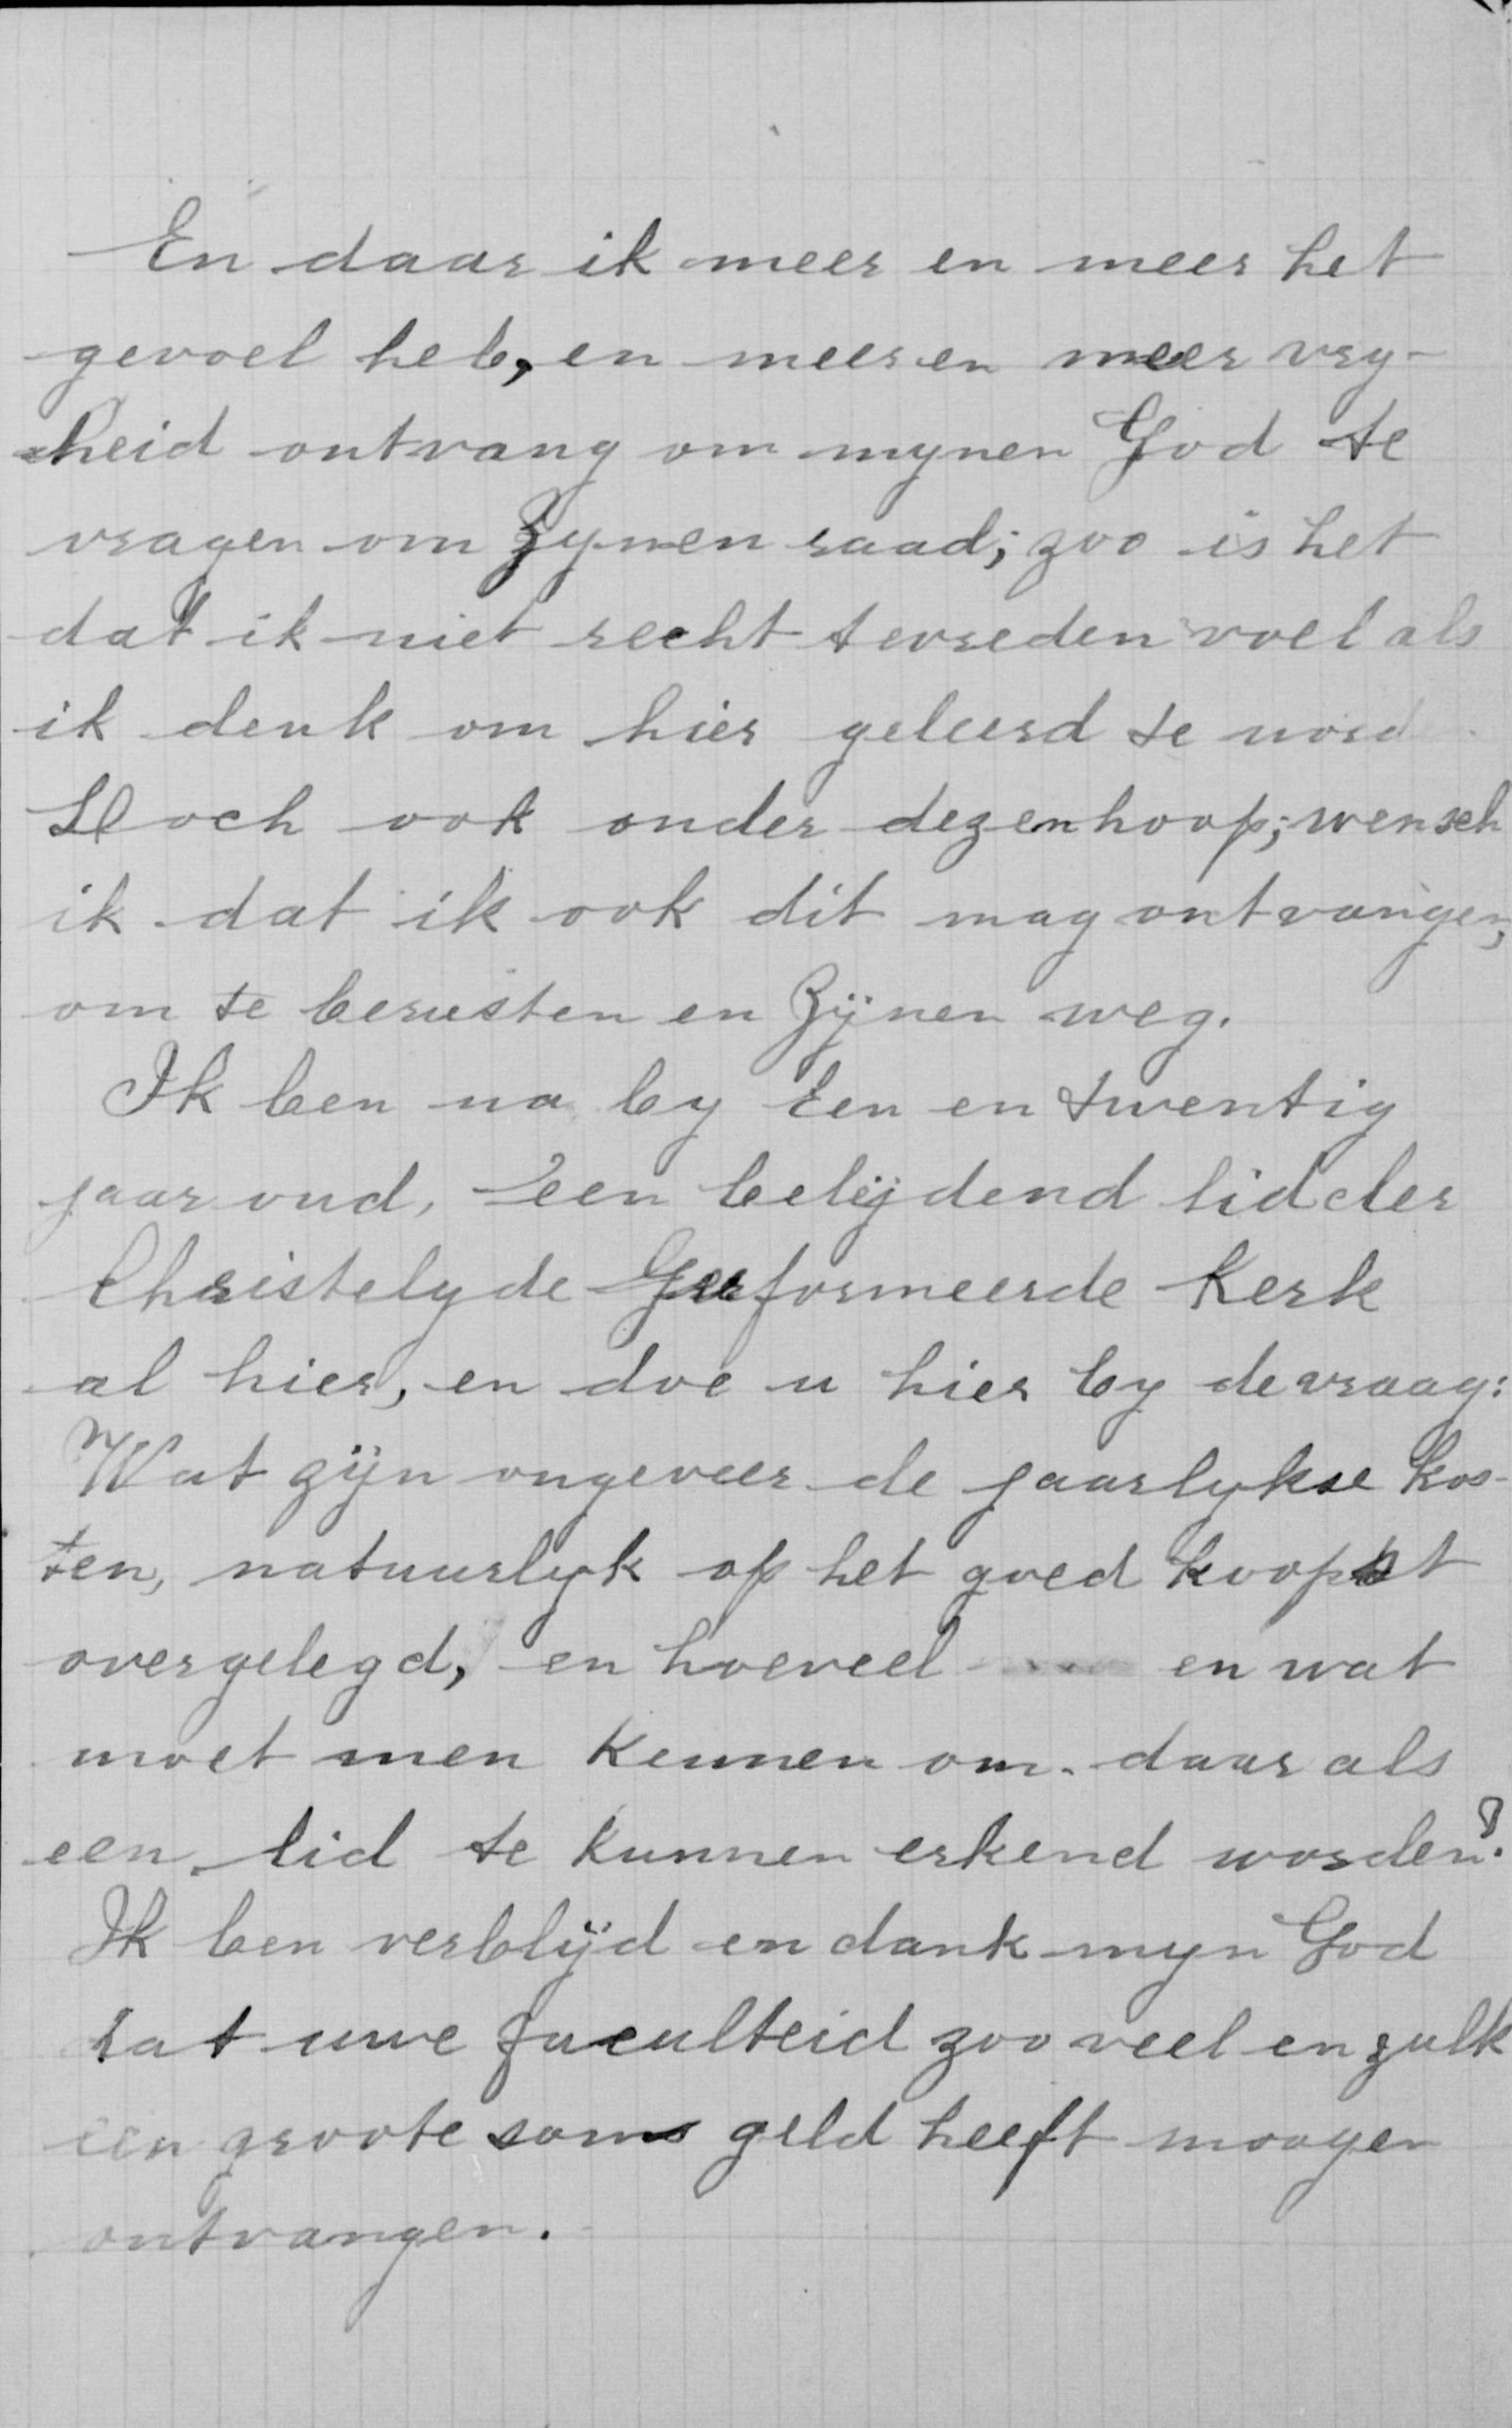 En daar ik meer en meer het
gevoel heb, en meer en meer vry-
heid ontvang om mynen God te
vragen om Zynen raad; zoo is het
dat ik niet recht tevreden voel als
ik denk om hier geleerd te word
Doch ook onder dezen hoop; wensch
ik dat ik ook dit mag ontvangen,
om te berusten en Zijnen weg.
Ik ben na by Een en twentig
jaar oud, een belijdend lid der
Christelyde Gereformeerde Kerk
al hier, en doe u hier by de vraag:
Wat zijn ongeveer de jaarlykse kos-
ten, natuurlyk op het goed koopst
overgelegd, en hoeveel en wat
moet men kennen om daar als
een lid te kunnen erkend worden?
Ik ben verblijd en dank myn God
dat uwe faculteid zoo veel en zulk
een groote som geld heeft moogen
ontvangen.